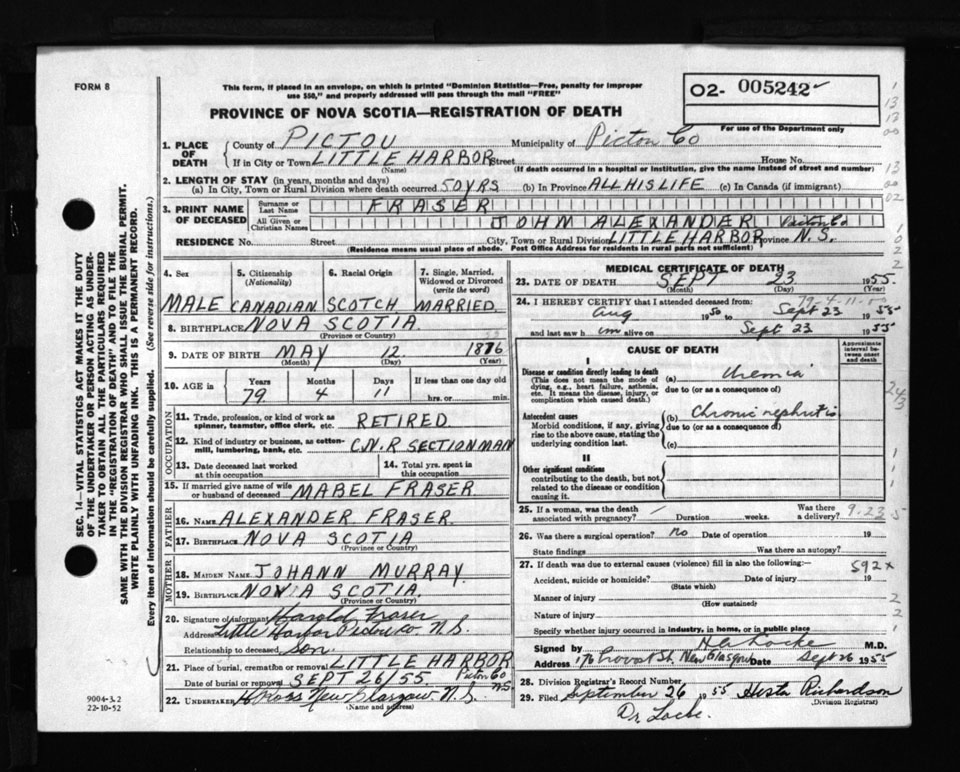 FORM 8
This form, if placed in an envelope, on which is printed "Dominion Statistics—Free, penalty for improper
use $50," and properly addressed will pass through the mail "FREE"
PROVINCE OF NOVA SCOTIA—REGISTRATION OF DEATH
O2- 005242
For use of the Department only
1. PLACE OF DEATH
County of PICTOU Municipality of Pictou Co
If in City or Town LITTLE HARBOR Street House No.
(Name) (If death occurred in a hospital or institution, give the name instead of street and number)
2. LENGTH OF STAY (in years, months and days)
(a) In City, Town or Rural Division where death occurred 50 YRS (b) In Province ALL HIS LIFE (c) In Canada (if immigrant)
3. PRINT NAME OF DECEASED
Surname or Last Name FRASER
All Given or Christian Names JOHN ALEXANDER Pictou Co
RESIDENCE No. Street City, Town or Rural Division LITTLE HARBOR Province N.S.
(Residence means usual place of abode. Post Office Address for residents in rural parts not sufficient)
4. Sex
5. Citizenship (Nationality)
6. Racial Origin
7. Single, Married, Widowed or Divorced (write the word)
MALE CANADIAN SCOTCH MARRIED
8. BIRTHPLACE NOVA SCOTIA
(Province or Country)
9. DATE OF BIRTH MAY 12 1876
(Month) (Day) (Year)
10. AGE in Years Months Days If less than one day old
79 4 11 hrs. or min.
OCCUPATION
11. Trade, profession, or kind of work as
spinner, teamster, office clerk, etc. RETIRED
12. Kind of industry or business, as cotton-
mill, lumbering, bank, etc. C.N.R SECTIONMAN
13. Date deceased last worked
at this occupation
14. Total yrs. spent in
this occupation
15. If married give name of wife
or husband of deceased MABEL FRASER
FATHER
16. NAME ALEXANDER FRASER
17. BIRTHPLACE NOVA SCOTIA
(Province or Country)
MOTHER
18. MAIDEN NAME JOHANN MURRAY
19. BIRTHPLACE NOVIA SCOTIA
(Province or Country)
20. Signature of informant Harold Fraser
Address Little Harbor Pictou Co N.S.
Relationship to deceased son
21. Place of burial, cremation or removal LITTLE HARBOR
Pictou Co
Date of burial or removal SEPT 26/55 N.S.
22. UNDERTAKER H Ross New Glasgow N.S.
(Name and address)
9004-3.2
22-10-52
SEC. 14—VITAL STATISTICS ACT MAKES IT THE DUTY
OF THE UNDERTAKER OR PERSON ACTING AS UNDER-
TAKER TO OBTAIN ALL THE PARTICULARS REQUIRED
IN THE "REGISTRATION OF DEATH" AND TO FILE THE
SAME WITH THE DIVISION REGISTRAR WHO SHALL ISSUE THE BURIAL PERMIT.
WRITE PLAINLY WITH UNFADING INK. THIS IS A PERMANENT RECORD.
Every item of information should be carefully supplied. (See reverse side for instructions.)
MEDICAL CERTIFICATE OF DEATH
23. DATE OF DEATH SEPT 23 1955
(Month) (Day) (Year)
79-4-11
24. I HEREBY CERTIFY that I attended deceased from:
Aug 1950 to Sept 23 1955
and last saw him alive on Sept 23 1955
CAUSE OF DEATH
Approximate interval between onset and death
I
Disease or condition directly leading to death
(This does not mean the mode of
dying, e.g., heart failure, asthenia,
etc. It means the disease, injury, or
complication which caused death.)
(a) Uremia
due to (or as a consequence of)
Antecedent causes
Morbid conditions, if any, giving
rise to the above cause, stating the
underlying condition last.
(b) Chronic nephritis
due to (or as a consequence of)
(c)
II
Other significant conditions
contributing to the death, but not
related to the disease or condition
causing it.
243
25. If a woman, was the death
associated with pregnancy? Duration weeks. Was there a delivery?
9.23 5
26. Was there a surgical operation? no Date of operation 19
State findings Was there an autopsy?
27. If death was due to external causes (violence) fill in also the following:— 592x
Accident, suicide or homicide? Date of injury 19
(State which)
Manner of injury
(How sustained)
Nature of injury
Specify whether injury occurred in industry, in home, or in public place
Signed by Locke M.D.
Address 176 Provost St. New Glasgow Date Sept 26 1955
28. Division Registrar's Record Number
29. Filed September 26 1955 Hesta Richardson
(Division Registrar)
Dr Locke.